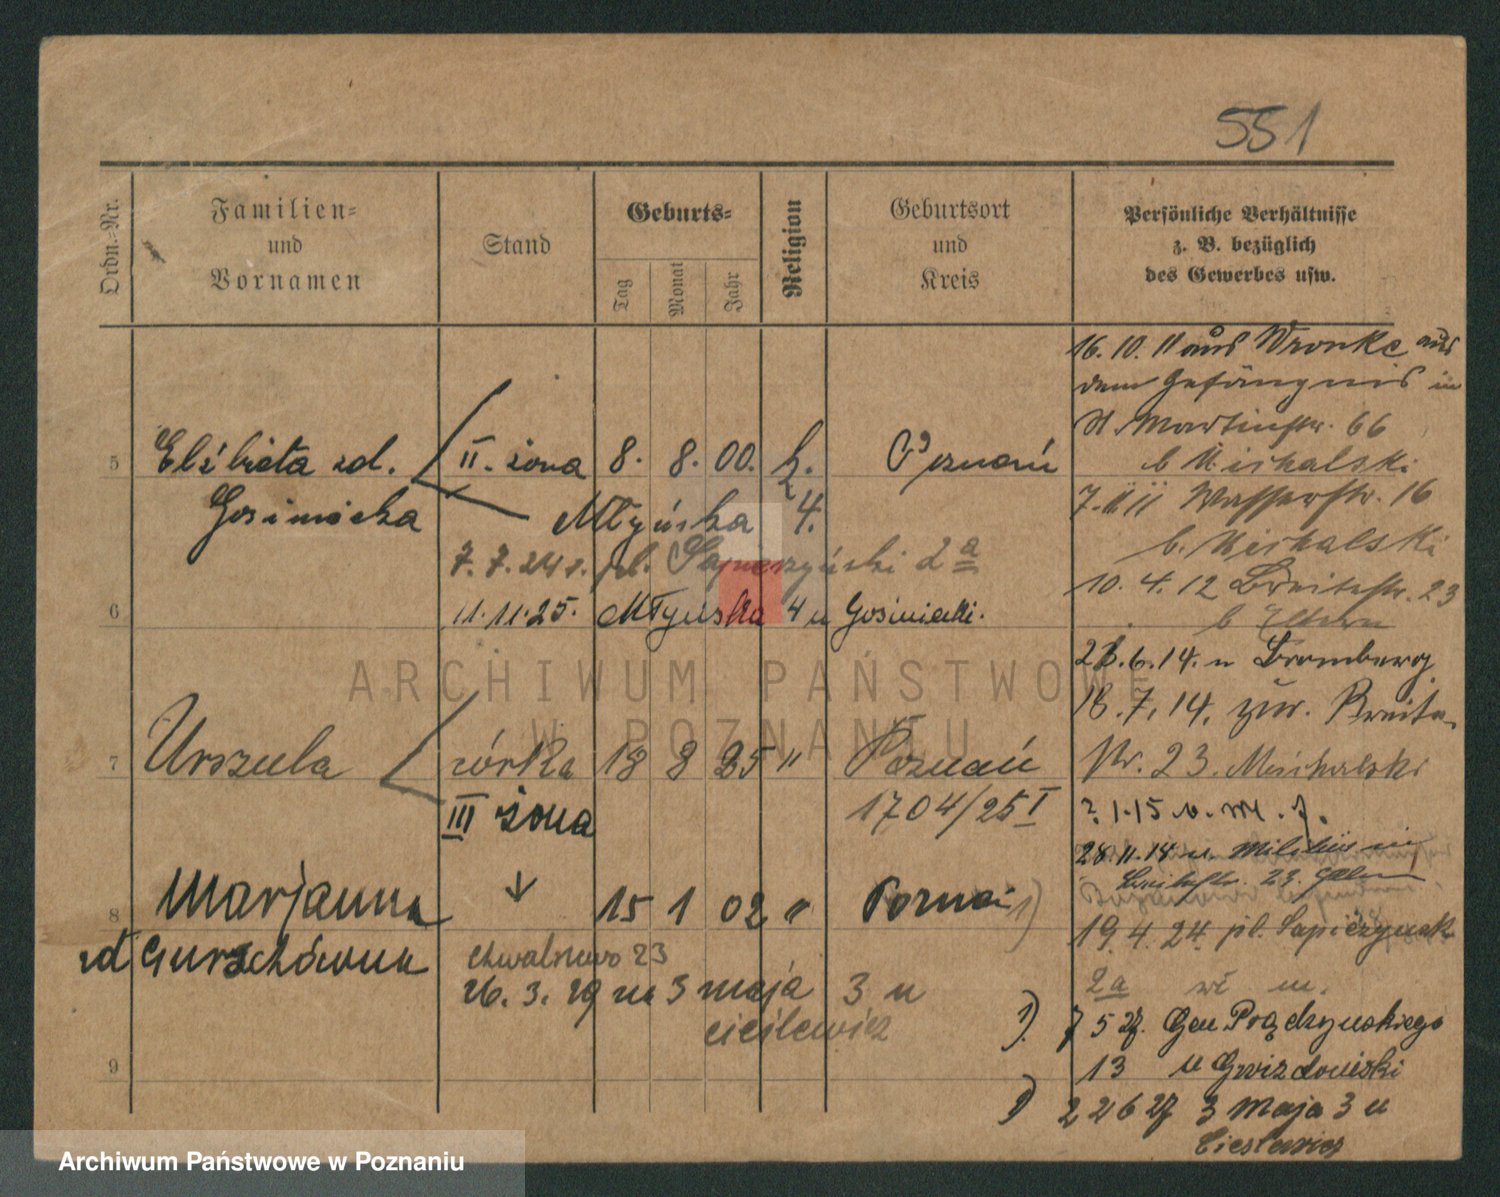 551
Ordn.-Nr.
Familien-
und
Vornamen
Stand
Geburts-
Tag
Monat
Jahr
Religion
Geburtsort
und
Kreis
Persönliche Verhältnisse
z. B. bezüglich
des Gewerbes usw.
16. 10. 11 aus Wronke aus
dem Gefängnis in
St. Martinstr. 66
b Michalski
7. 11 11 Wasserstr. 16
b. Michalski
10. 4. 12 Breitestr. 23
b Eltern
28. 6. 14. n Bromberg
18. 7. 14. zur. Breite
Nr. 23. Michalski
? 1. 15 v. M. f.
28. 11. 14 Militär
Breitestr. 23
19. 4. 24. pl. Sapieżyńsk
2a m.
1) 7 5 27. Gen Prądzyńskiego
13 u Gwizdowski
22 6 27 3 Maja 3 u
Cieslewicz
5 Elżbieta zd. II. żona 8. 8. 00. k. Poznań
Gosiniecka Młyńska 4.
7. 7. 24 r. pl. Sapieżyński 2a
6 11. 11. 25. Młyńska 4 u Gosiniecki.
7 Urszula córka 18 8 25 " Poznań
III żona 1704/25 I
8 Marjanna 15 1 02 " Poznań 1)
zd Gurschówna Chwalszewo 23
26. 3. 29 na 3 maja 3 u
cieślewicz
9
ARCHIWUM PAŃSTWOWE
W POZNANIU
Archiwum Państwowe w Poznaniu